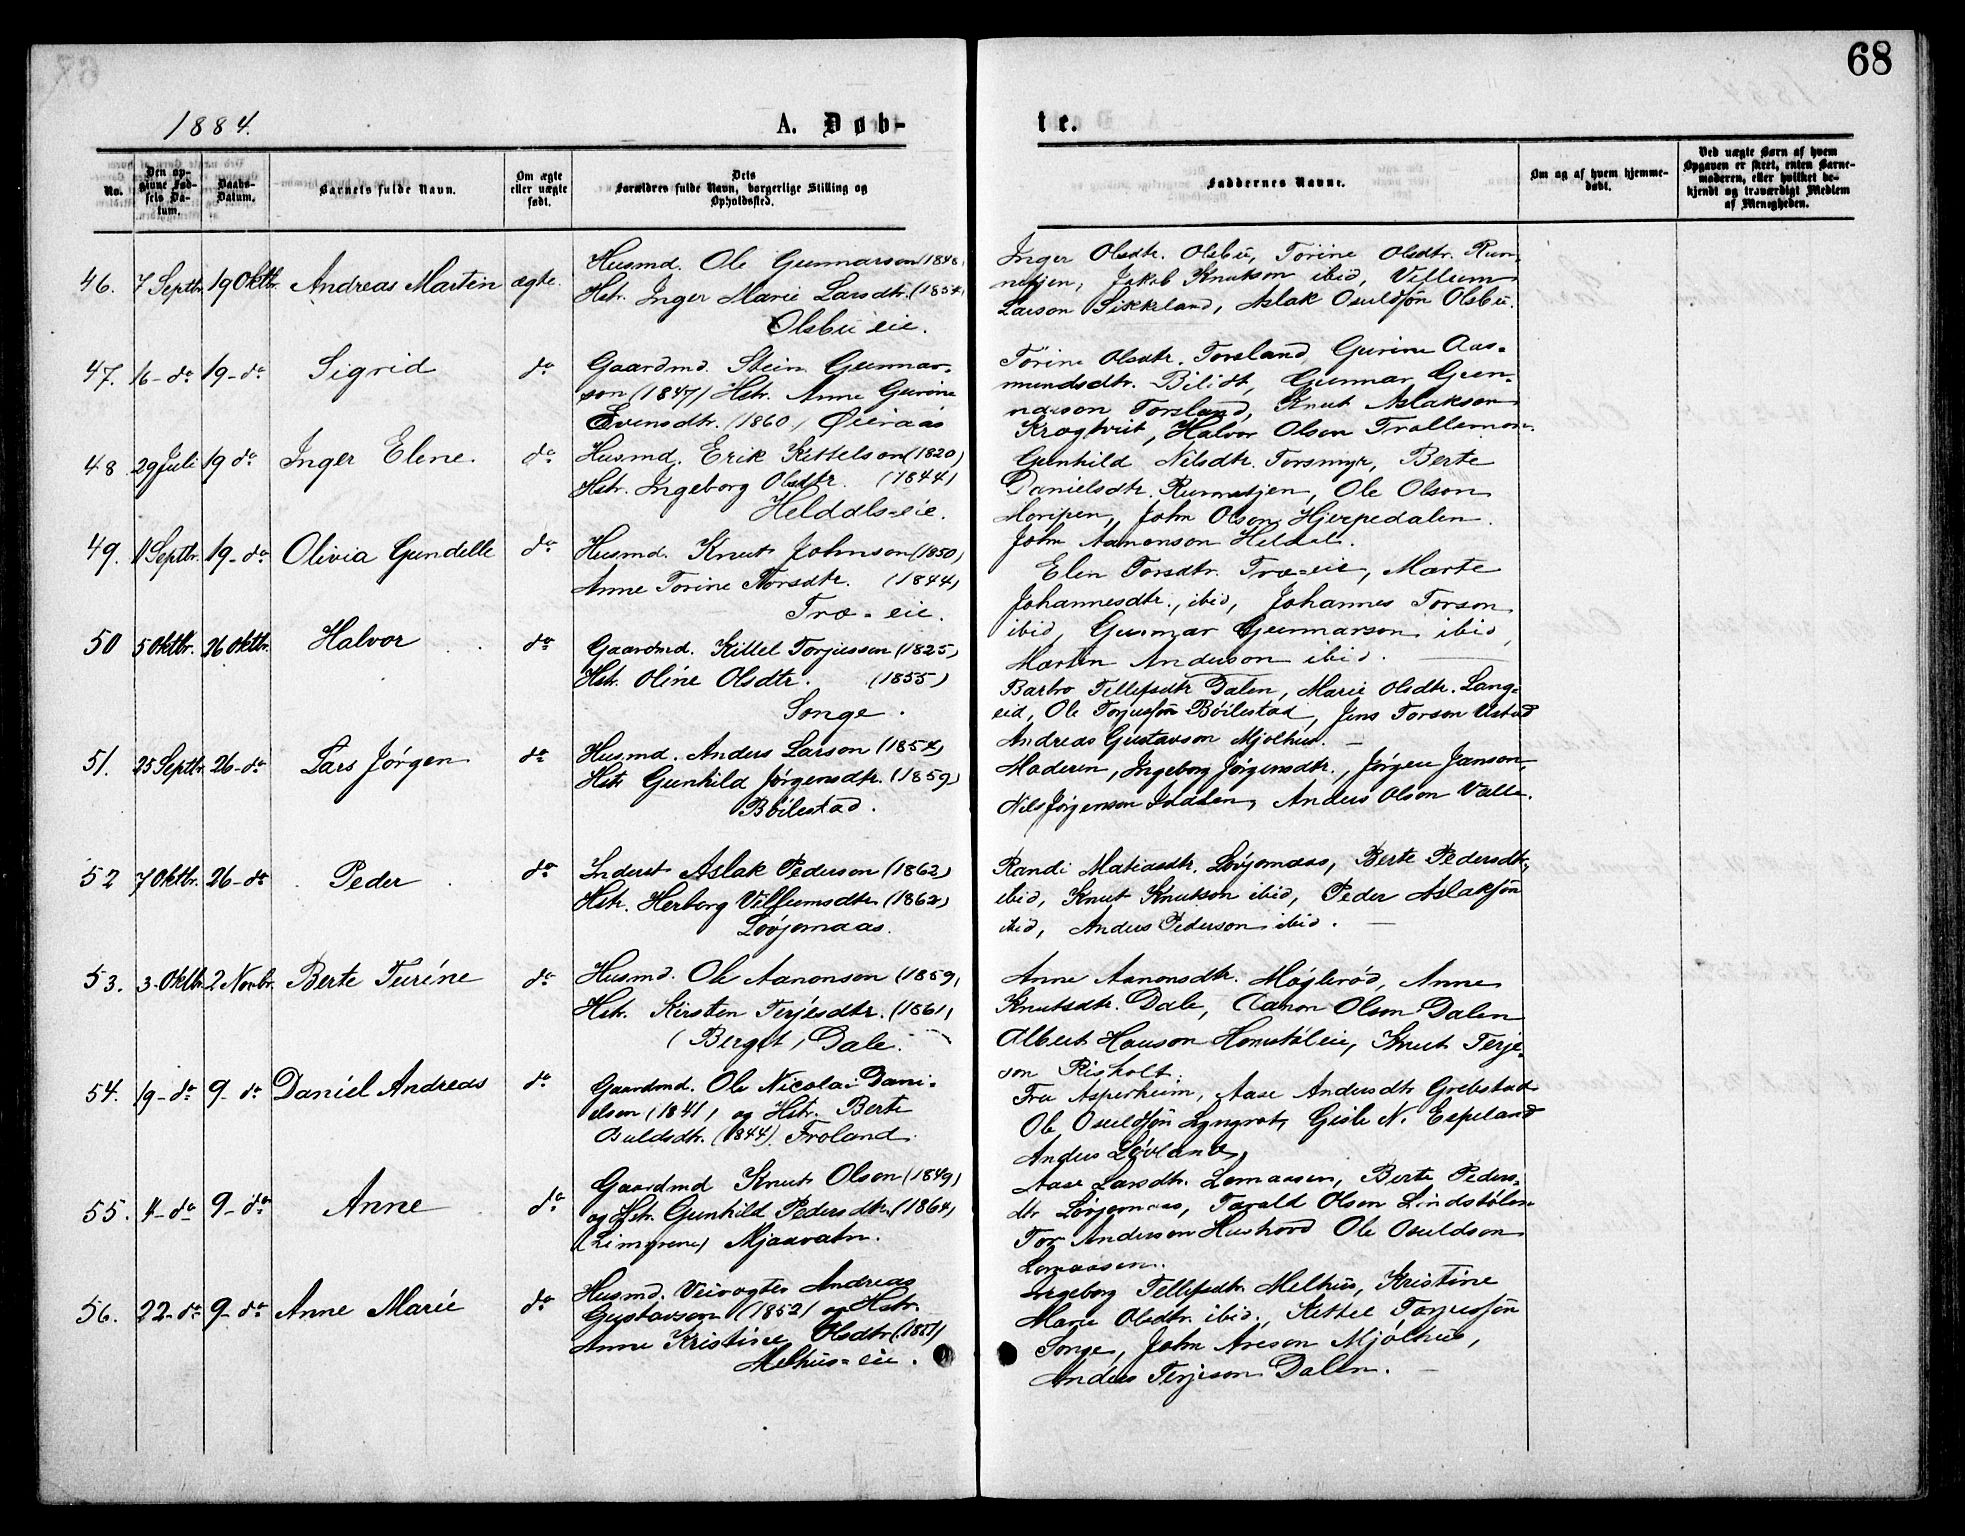 68
1884.
A. Døb-
te.
No.
Den op-
givne Fød-
sels Da-
tum.
Daabs-
Datum.
Barnets fulde Navn.
Om ægte
eller uægte
født.
Dets
Forældres fulde Navn, borgerlige Stilling og
Opholdssted.
Faddernes Navne.
Om og af hvem hjemme-
døbt.
Ved uægte Børn af hvem
Opgaven er skeet, enten Barne-
moderen, eller hvilket be-
kjendt og troværdigt Medlem
af Menigheden.
46. 7 Septbr. 19 Oktbr. Andreas Martin ægte.
Husmd. Ole Gunnarson (1848)
Hstr. Inger Marie Larsdtr. (1854)
Olsbu eie.
Inger Olsdtr. Olsbu, Torine Olsdtr. Run-
netjen, Jakob Knutson ibid, Villum
Larson Sikkeland, Aslak Osuldsøn Olsbu.
47. 16 - do 19 - do Sigrid do
Gaardmd. Stein Gunnar-
son (1847) Hstr. Anne Gurine
Evensdtr. (1860) Øieraas
Torine Olsdtr. Torsland, Gurine Aas-
mundsdtr. Bilidt, Gunnar Gun-
narson Torsland, Knut Aslakson
Kragtveit, Halvor Olson Trollemon.
48 29 Juli 19 do Inger Elene. do
Husmd. Erik Kittelson (1820)
Hstr. Ingeborg Olsdtr. (1844)
Helddls-eie.
Gunhild Nilsdtr. Torsmyr, Berte
Danielsdtr. Runnetjen, Ole Olson
Moripen, John Olson Hjerpedalen.
John Aanonson Heldal.
49. 11 Septbr. 19 - do Olivia Gundelle do
Husmd. Knut Johnson (1850)
Anne Torine Torsdtr. (1844)
Tra - eie.
Elen Torsdtr. Tra-eie, Marte
Johannesdtr., ibid, Johannes Torson
ibid, Gunnar Gunnarson ibid,
Martin Anderson ibid.
50 5 Oktbr. 26 Oktbr. Halvor do
Gaardmd. Kittel Torjusson (1825)
Hstr. Oline Olsdtr. (1855)
Songe.
Barbro Tellefsdtr Dalen, Marie Olsdtr. Lang-
eid, Ole Torjussøn Bøilestad, Jens Torson Ustad
Andreas Gustavson Mjølhus.
51. 25 Septbr. 26 - do Lars Jørgen do
Husmd. Anders Larson (1854)
Hstr Gunhild Jørgensdtr. (1859)
Bøilestad.
Moderen, Ingeborg Jørgensdtr., Jørgen Janson,
Nils Jørgenson, Anders Olson Valle.
52 7 Oktbr. 26 - do Peder do
Inderst Aslak Pederson (1862)
Hstr. Herborg Villumsdtr (1862)
Løvjomaas.
Randi Matiasdtr. Løvjomaas, Berte Pedersdtr.
ibid, Knut Knutson ibid, Peder Aslaksøn
ibid, Anders Pederson ibid.
53. 3 - Oktbr. 2 Novbr. Berte Turine do
Husmd. Ole Aanonson (1859)
Hstr. Kirsten Terjesdtr. (1861)
(Berget) Dale.
Anne Aanonsdtr. Møglerød, Anne
Knutsdtr. Dale, Aanon Olson Dalen
Albert Hauson, Knut Terje-
son Risholt.
54. 19 - do 9 - do Daniel Andreas do
Gaardmd. Ole Nicolai Dani-
elson (1841) og Hstr. Berte
Osuldsdtr. (1844). Froland.
Fru Asperheim, Aase Andersdtr Grebstad
Ole Osuldsøn, Gisle N. Espeland
Anders Løvland.
55. 11 - do 9 - do Anne do
Gaardmd Knut Olson (1849)
og Hstr. Gunhild Pedersdtr. (1864)
(Limyrene) Mjaavatn.
Aase Larsdtr. Lomaasen, Berte Peders-
dtr Løvjomaas, Tarald Olson Lindstølen
Tor Anderson, Ole Osuldson
Lomaasen.
56. 22 - do 9 - do Anne Marie do
Husmd. Veivogter Andreas
Gustavson (1852) og Hstr.
Anne Kristine Olsdtr (1857)
Melhus-eie.
Ingeborg Tellefsdtr Melhus, Kristine
Marie Olsdtr ibid., Kettel Torjussøn
Songe, John Areson Mjølhus,
Anders Terjeson Dalen.